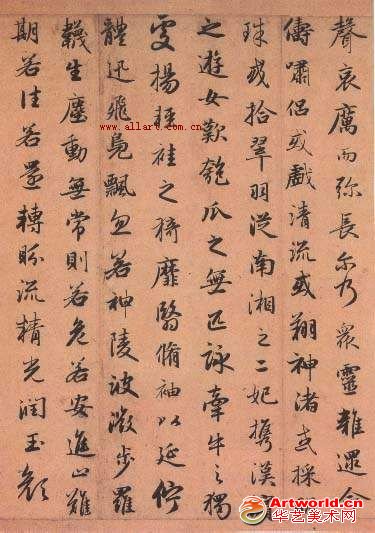 聲哀厲而弥長尓乃衆靈雜遝命
儔嘯侶或戲清流或翔神渚或採
珠或拾翠羽從南湘之二妃攜漢
之遊女歎匏瓜之無匹詠牽牛之獨
處揚輕袿之猗靡翳脩袖以延佇
體迅飛鳧飄忽若神陵波微步羅
韈生塵動無常則若危若安進止難
期若往若還轉眄流精光潤玉顏
www.allart.com.cn
Artworld.cn
华艺美术网